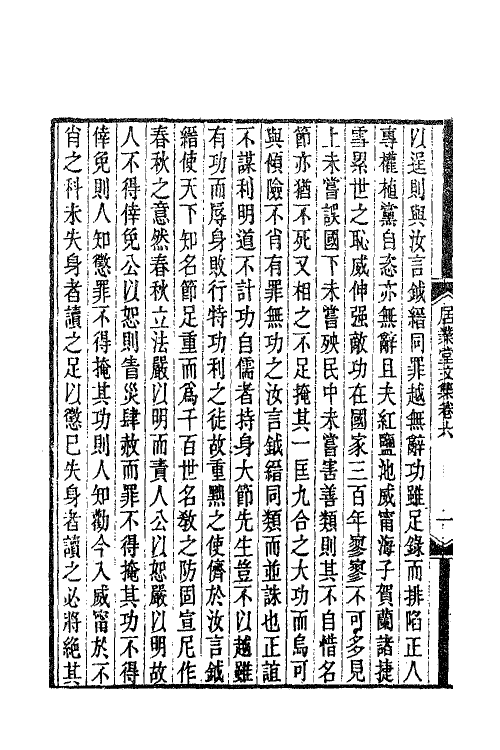 以逞則與汝言鉞縉同罪越無辭功雖足錄而排陷正人
專權植黨自恣亦無辭且夫紅鹽池威甯海子賀蘭諸捷
雪累世之恥威伸强敵功在國家三百年寥寥不可多見
上未嘗誤國下未嘗殃民中未嘗害善類則其不自惜名
節亦猶不死又相之不足掩其一匡九合之大功而烏可
與傾險不肖有罪無功之汝言鉞縉同類而並誅也正誼
不謀利明道不計功自儒者持身大節先生豈不以越雖
有功而辱身敗行特功利之徒故重黜之使儕於汝言鉞
縉使天下知名節足重而爲千百世名敎之防固宣尼作
春秋之意然春秋立法嚴以明而責人公以恕嚴以明故
人不得倖免公以恕則眚災肆赦而罪不得掩其功不得
倖免則人知懲罪不得掩其功則人知勸今入威甯於不
肖之科未失身者讀之足以懲已失身者讀之必將絕其
居業堂文集卷六
一